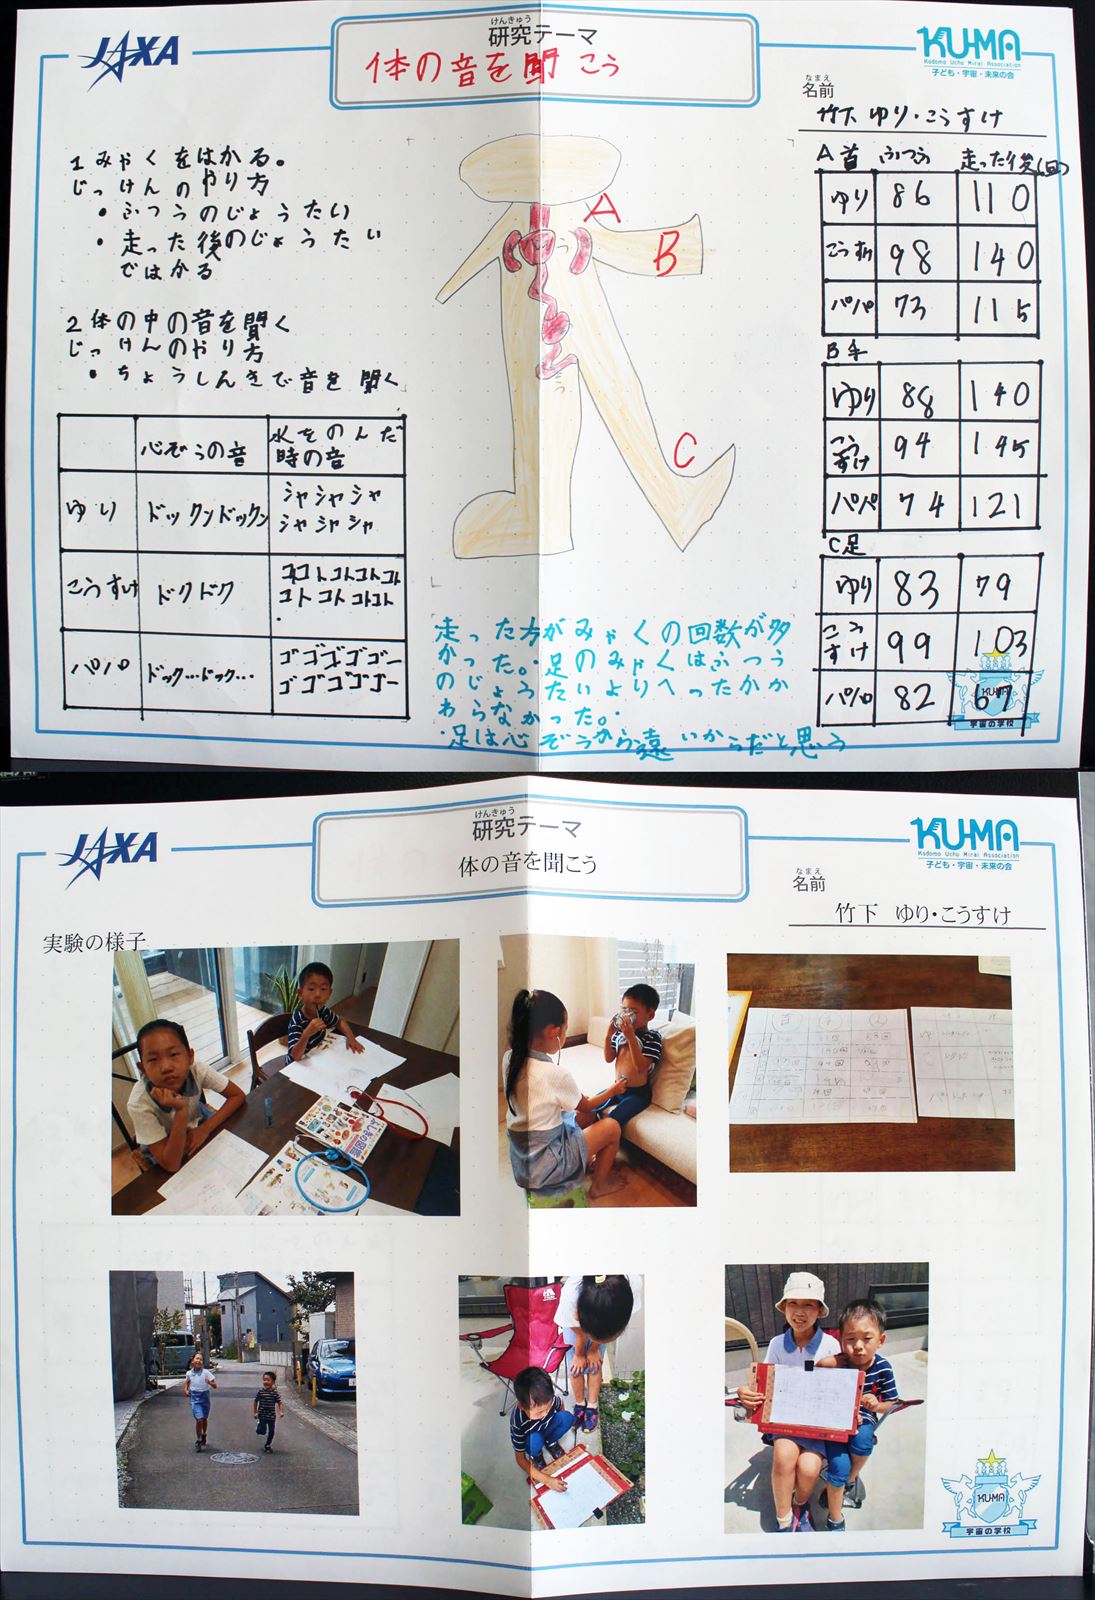 JAXA
けんきゅう
研究テーマ
体の音を聞こう
KU-MA
Kodomo Uchu Mirai Association
子ども・宇宙・未来の会
なまえ
名前
竹下 ゆり・こうすけ
1 みゃくをはかる。
じっけんのやり方
・ふつうのじょうたい
・走った後のじょうたい
ではかる
2 体の中の音を聞く
じっけんのやり方
・ちょうしんきで音を聞く
心ぞうの音 水をのんだ
時の音
ゆり ドックンドックン シャシャシャ
シャシャシャ
こうすけ ドクドク コトコトコトコト
コトコトコトコト
パパ ドック…ドック… ゴゴゴゴゴー
ゴゴゴゴゴー
A
B
C
走った方がみゃくの回数が多
かった。・足のみゃくはふつう
のじょうたいよりへったかか
わらなかった。・
・足は心ぞうから遠いからだと思う
A 首 ふつう 走った後(回)
ゆり 86 110
こうすけ 98 140
パパ 73 115
B 手
ゆり 88 140
こうすけ 94 145
パパ 74 121
C 足
ゆり 83 79
こうすけ 99 103
パパ 82 67
宇宙の学校
JAXA
けんきゅう
研究テーマ
体の音を聞こう
KU-MA
Kodomo Uchu Mirai Association
子ども・宇宙・未来の会
なまえ
名前
竹下 ゆり・こうすけ
実験の様子
KU-MA
宇宙の学校